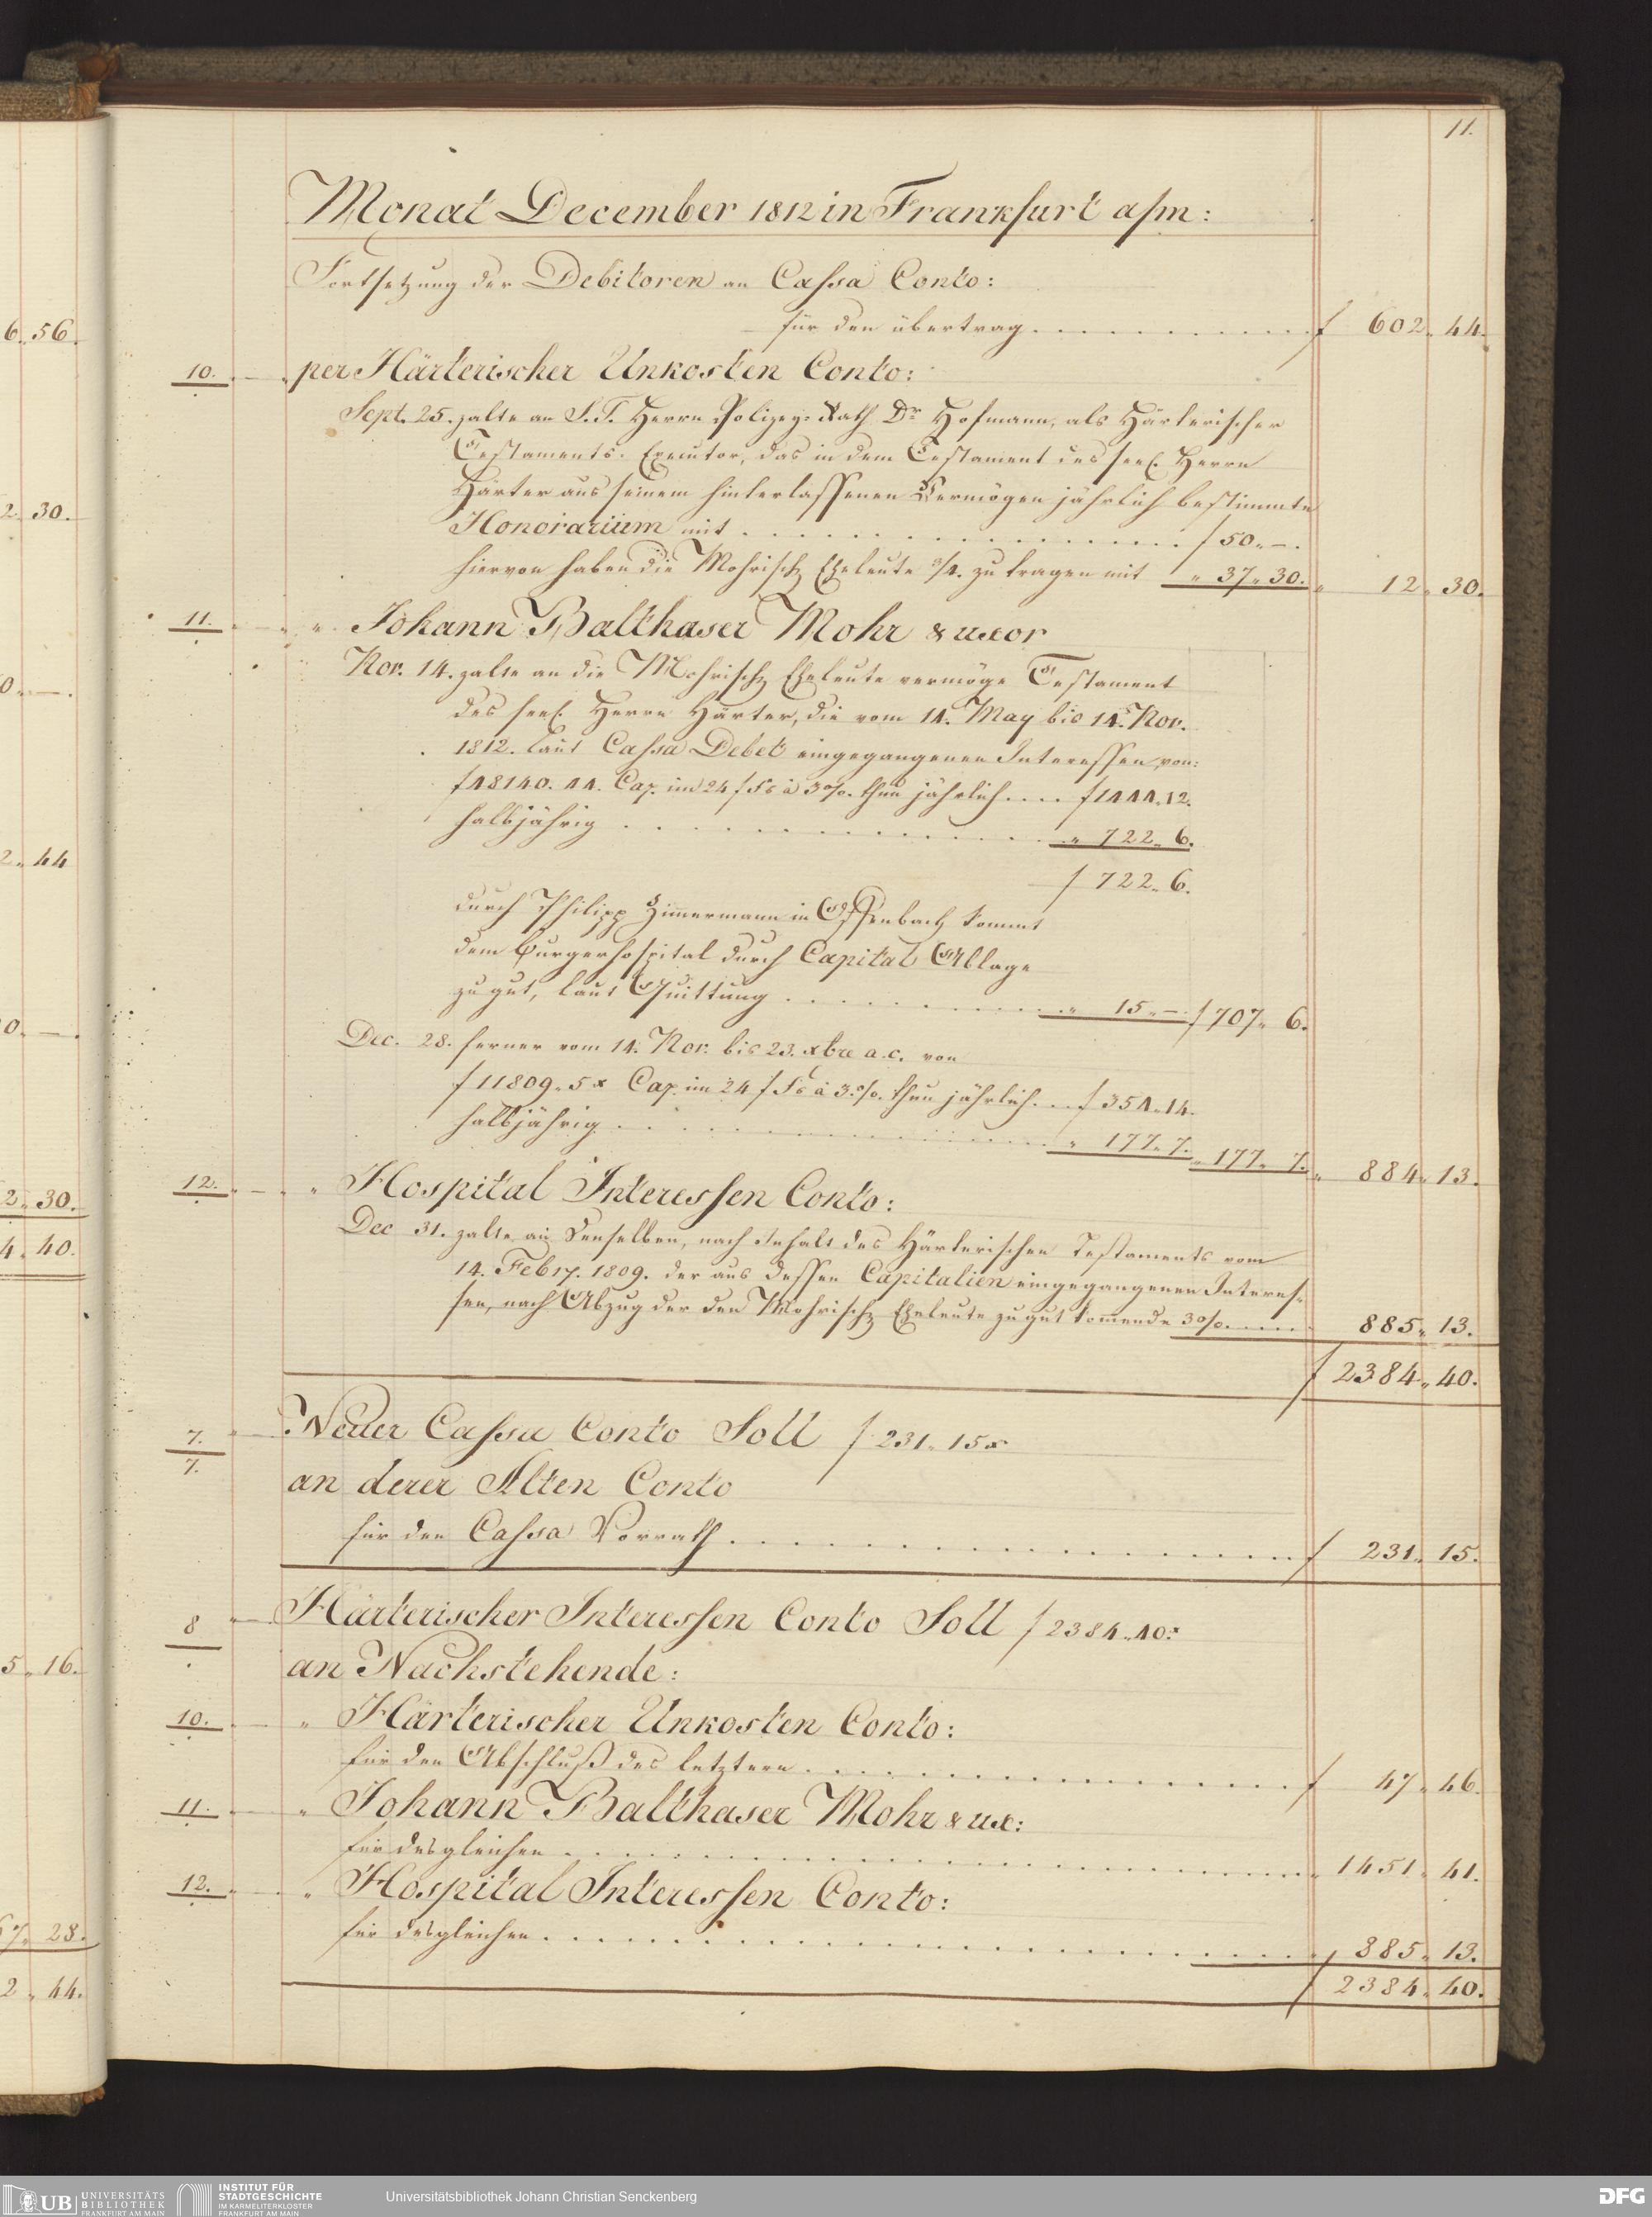 11.
Monat December 1812 in Frankfurt a/m:
Fortsetzung der Debitoren an Cassa Conto:
für den übertrag . . . . . . . . . . f 602. 44.
10. per Härterischer Unkosten Conto:
Sept. 25. zalte an S. T. Herrn Polizey-Rath Dr Hofmann, als Härterischer
Testaments-Executor, das in dem Testament des seel. Herrn
Härter aus seinem hinterlassenen Vermögen jährlich bestimmte
Honorarium mit . . . . . . . . . . f 50. –.
hiervon haben die Mohrisch Eheleute 3/4. zu tragen mit " 37. 30. " 12. 30.
11. " Johann Balthaser Mohr & uxor
Nov. 14. zalte an die Mohrisch Eheleute vermöge Testament
des seel. Herrn Härter, die vom 14. May bis 14. Nov.
1812. laut Cassa Debet eingegangenen Interessen, von:
f 48140. 44. Cap. im 24 f Fs à 3%. thun jährlich . . . . f 1444. 12.
halbjährig . . . . . . . . . . " 722. 6.
f 722. 6.
durch Philipp Zimmermann in Offenbach kommt
dem Burgerhospital durch Capital Ablage
zu gut, laut Quittung . . . . . . . . " 15. –. f 707. 6.
Dec. 28. ferner vom 14. Nov. bis 23. xbre a.c. von
f 11809. 5 x Cap. im 24 f Fs à 3%. thun jährlich . . . f 354. 14.
halbjährig . . . . . . . . . . " 177. 7. " 177. 7. " 884. 13.
12. " Hospital Interessen Conto:
Dec 31. zalte an Denselben, nach Inhalt des Härterischen Testaments vom
14. Febry. 1809. der aus dessen Capitalien eingegangenen Interes-
sen, nach Abzug der den Mohrisch Eheleute zu gut kommende 3%. . . . . . 885. 13.
f 2384. 40.
7. Neuer Cassa Conto Soll f 231. 15 x
7. an derer Alten Conto
für den Cassa Vorrath . . . . . . . . . . f 231. 15.
8 Härterischer Interessen Conto Soll f 2384. 40 x
an Nachstehende:
10. " Härterischer Unkosten Conto:
für den Abschluß des letztern . . . . . . . . . . f 47. 46.
11. " Johann Balthaser Mohr & ux:
für desgleichen . . . . . . . . . . " 1451. 41.
12. " Hospital Interessen Conto:
für desgleichen . . . . . . . . . . " 885. 13.
f 2384. 40.
6. 56.
2. 30.
0. –.
2. 44
0. –.
2. 30.
4. 40.
5. 16.
28.
2. 44.
UB UNIVERSITÄTS
BIBLIOTHEK
FRANKFURT AM MAIN
INSTITUT FÜR
STADTGESCHICHTE
IM KARMELITERKLOSTER
FRANKFURT AM MAIN
Universitätsbibliothek Johann Christian Senckenberg
DFG